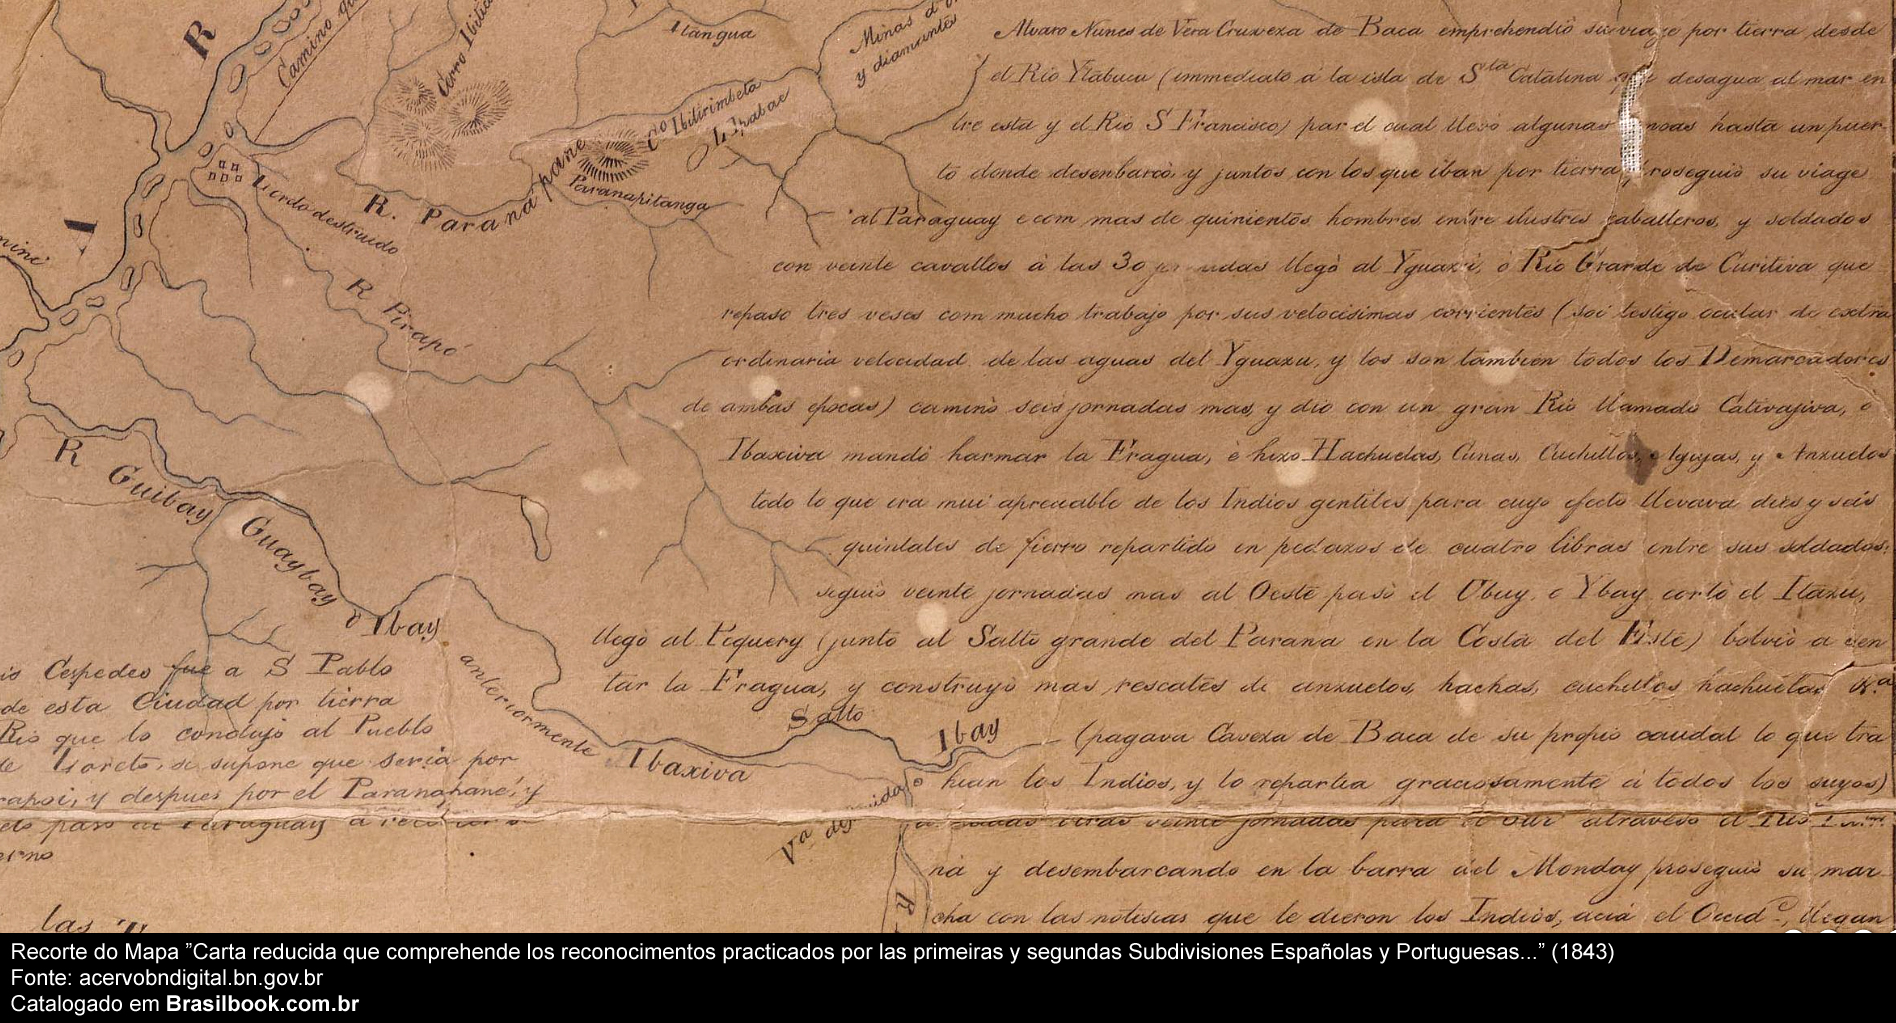 R
Camino
Cerro
Itangua
Minas d
y diamantes
Alvaro Nunes de Vera Cruveza de Baca emprehendiò su viage por tierra desde
el Rio Ytabucu (immediato à la isla de Sta Catalina desagua al mar en
tre esta y el Rio S Francisco) par el cual llevò algunas hasta un puer
to donde desenbarcò, y juntos con los que iban por tierra, proseguiò su viage
al Paraguay e com mas de quinientos hombres, entre ilustres caballeros, y soldados
con veinte cavallos à las 30 llegò al Yguazú, ò Rio Grande de Curitiva que
repaso tres veses com mucho trabajo por sus velocisimas corrientes (soi testigo ocular de extra
ordinaria velocidad de las aguas del Yguazu, y los son tambien todos los Demarcadores
de ambas epocas) caminò seis jornadas mas, y dio con un gran Rio llamado Cativajiva, ò
Ibaxiva mandò harmar la Fragua, è hizo Hachuelas, Cunas, Cuchillos, Agujas, y Anzuelos
todo lo que era mui apreciable de los Indios gentiles para cuyo efecto llevava dies y seis
quintales de fierro repartido en pedazos de cuatro libras entre sus soldados:
siguiò veinte jornadas mas al Oeste pasò el Ubuy, o Ybay cortò el Itazu,
llegò al Pequery (junto al Salto grande del Parana en la Costa del Este) bolviò a sen
tar la Fragua, y construyò mas rescates de anzuelos, hachas, cuchillos hachuelas &.a
(pagava Caveza de Baca de su propio caudal lo que tra
hian los Indios, y lo repartia graciosamente à todos los suyos)
otras veinte jornadas para el Sur atravesò el Rio
nà y desembarcando en la barra del Monday prosiguiò su mar
cha con las notisias que le dieron los Indios, acia el Occid.e, llegan
Co Ibitirimbeta
Paranapitanga
R. Paranápane
Loredo destruido
A
R Pirapó
R Guibay
Guaybay
ò Ibay
anteriormente
Ibaxiva
Salto
Ibay
Va
R
Cespedes fue a S Pablo
de esta Ciudad por tierra
Rio que lo condujo al Pueblo
de Loreto, se supone que seria por
y despues por el Paranapané, y
paso al Paraguay a
erno
las
Recorte do Mapa ”Carta reducida que comprehende los reconocimentos practicados por las primeiras y segundas Subdivisiones Españolas y Portuguesas...” (1843)
Fonte: acervobndigital.bn.gov.br
Catalogado em Brasilbook.com.br